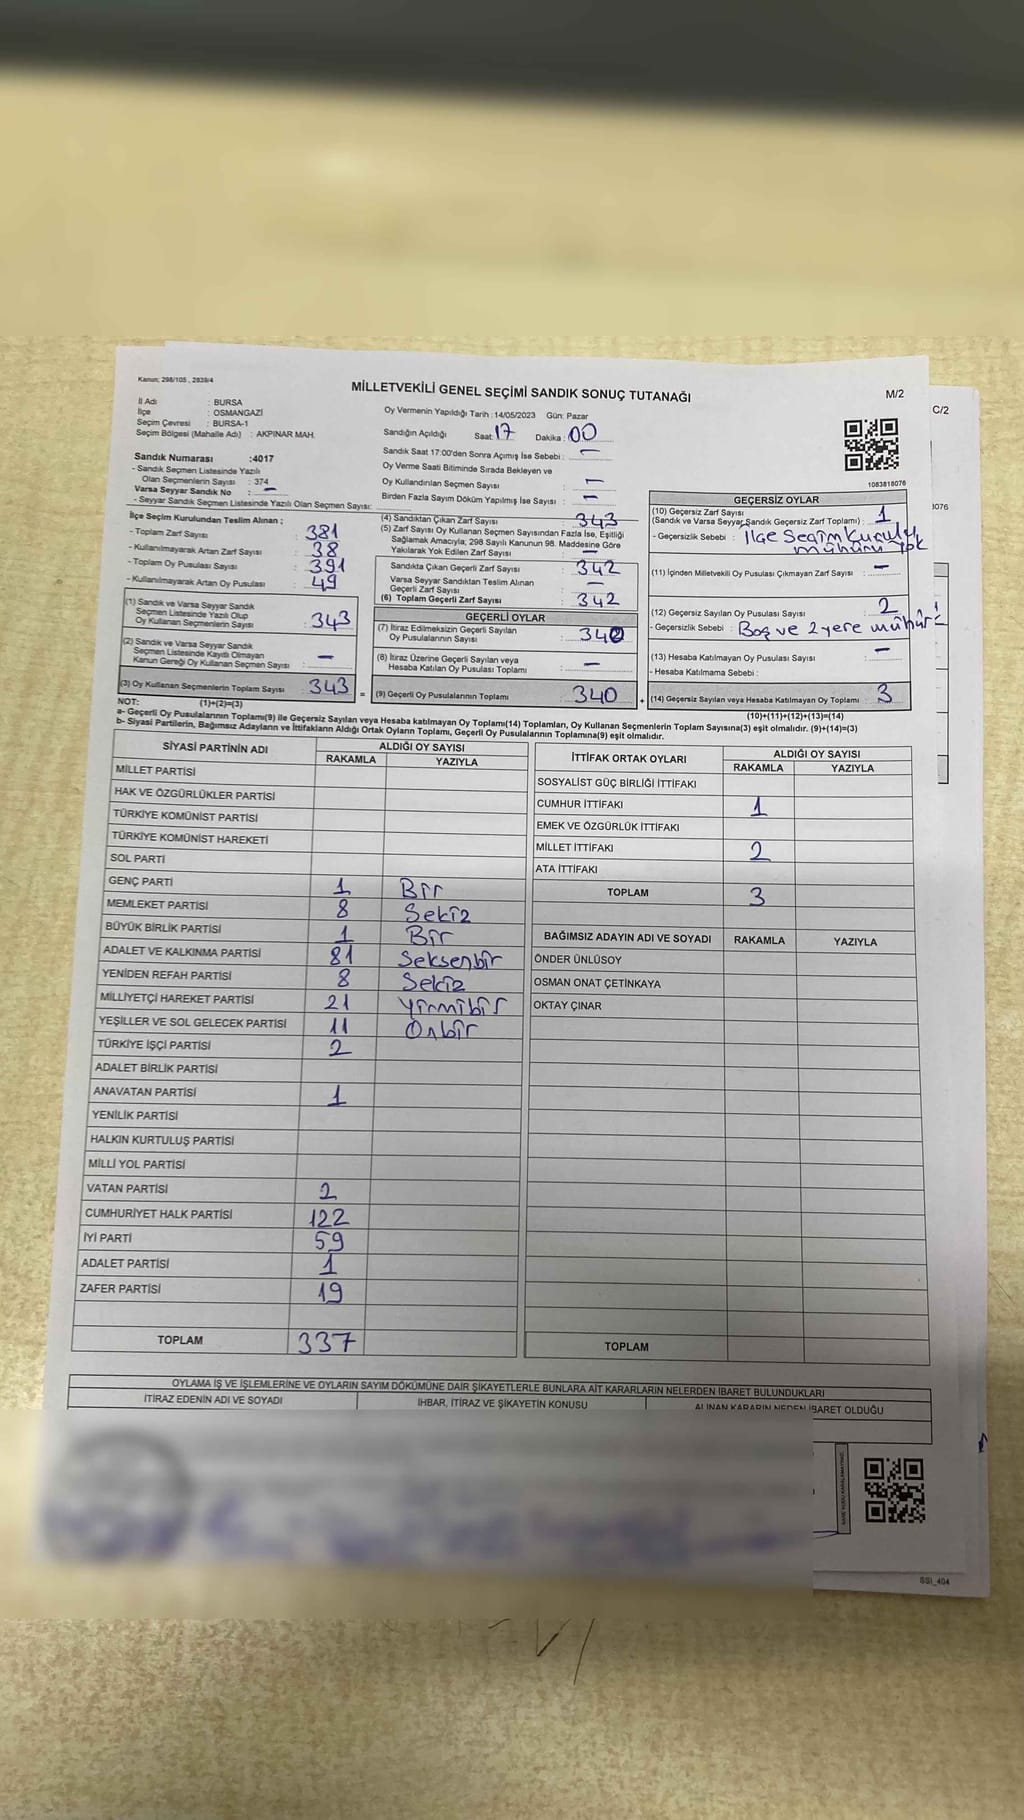 Kanun; 298/105 , 2839/4
MİLLETVEKİLİ GENEL SEÇİMİ SANDIK SONUÇ TUTANAĞI
M/2
C/2
İl Adı : BURSA
İlçe : OSMANGAZİ
Seçim Çevresi : BURSA-1
Seçim Bölgesi (Mahalle Adı) : AKPINAR MAH.
Oy Vermenin Yapıldığı Tarih :14/05/2023 Gün: Pazar
Sandığın Açıldığı Saat: 17 Dakika : 00
Sandık Saat 17:00'den Sonra Açımış İse Sebebi : –
Oy Verme Saati Bitiminde Sırada Bekleyen ve
Oy Kullandırılan Seçmen Sayısı : –
Birden Fazla Sayım Döküm Yapılmış İse Sayısı : –
Sandık Numarası :4017
- Sandık Seçmen Listesinde Yazılı
Olan Seçmenlerin Sayısı : 374
Varsa Seyyar Sandık No : –
- Seyyar Sandık Seçmen Listesinde Yazılı Olan Seçmen Sayısı:
1083818076
3076
İlçe Seçim Kurulundan Teslim Alınan ;
- Toplam Zarf Sayısı : 381
- Kullanılmayarak Artan Zarf Sayısı : 38
- Toplam Oy Pusulası Sayısı : 391
- Kullanılmayarak Artan Oy Pusulası : 49
(1) Sandık ve Varsa Seyyar Sandık
Seçmen Listesinde Yazılı Olup
Oy Kullanan Seçmenlerin Sayısı : 343
(2) Sandık ve Varsa Seyyar Sandık
Seçmen Listesinde Kayıtlı Olmayan
Kanun Gereği Oy Kullanan Seçmen Sayısı : –
(3) Oy Kullanan Seçmenlerin Toplam Sayısı : 343 =
(4) Sandıktan Çıkan Zarf Sayısı : 343
(5) Zarf Sayısı Oy Kullanan Seçmen Sayısından Fazla İse, Eşitliği
Sağlamak Amacıyla; 298 Sayılı Kanunun 98. Maddesine Göre
Yakılarak Yok Edilen Zarf Sayısı : –
Sandıkta Çıkan Geçerli Zarf Sayısı : 342
Varsa Seyyar Sandıktan Teslim Alınan
Geçerli Zarf Sayısı : –
(6) Toplam Geçerli Zarf Sayısı : 342
GEÇERLİ OYLAR
(7) İtiraz Edilmeksizin Geçerli Sayılan
Oy Pusulalarının Sayısı : 340
(8) İtiraz Üzerine Geçerli Sayılan veya
Hesaba Katılan Oy Pusulası Toplamı : –
(9) Geçerli Oy Pusulalarının Toplamı : 340 +
GEÇERSİZ OYLAR
(10) Geçersiz Zarf Sayısı
(Sandık ve Varsa Seyyar Sandık Geçersiz Zarf Toplamı) : 1
- Geçersizlik Sebebi : İlçe Seçim Kurulu
mühürü yok
(11) İçinden Milletvekili Oy Pusulası Çıkmayan Zarf Sayısı : –
(12) Geçersiz Sayılan Oy Pusulası Sayısı : 2
- Geçersizlik Sebebi : Boş ve 2 yere mühür
(13) Hesaba Katılmayan Oy Pusulası Sayısı : –
- Hesaba Katılmama Sebebi :
(14) Geçersiz Sayılan veya Hesaba Katılmayan Oy Toplamı : 3
NOT: (1)+(2)=(3)
(10)+(11)+(12)+(13)=(14)
a- Geçerli Oy Pusulalarının Toplamı(9) ile Geçersiz Sayılan veya Hesaba katılmayan Oy Toplamı(14) Toplamları, Oy Kullanan Seçmenlerin Toplam Sayısına(3) eşit olmalıdır. (9)+(14)=(3)
b- Siyasi Partilerin, Bağımsız Adayların ve İttifakların Aldığı Ortak Oyların Toplamı, Geçerli Oy Pusulalarının Toplamına(9) eşit olmalıdır.
SİYASİ PARTİNİN ADI ALDIĞI OY SAYISI
RAKAMLA YAZIYLA
MİLLET PARTİSİ
HAK VE ÖZGÜRLÜKLER PARTİSİ
TÜRKİYE KOMÜNİST PARTİSİ
TÜRKİYE KOMÜNİST HAREKETİ
SOL PARTİ
GENÇ PARTİ 1 Bir
MEMLEKET PARTİSİ 8 Sekiz
BÜYÜK BİRLİK PARTİSİ 1 Bir
ADALET VE KALKINMA PARTİSİ 81 Seksenbir
YENİDEN REFAH PARTİSİ 8 Sekiz
MİLLİYETÇİ HAREKET PARTİSİ 21 Yirmibir
YEŞİLLER VE SOL GELECEK PARTİSİ 11 Onbir
TÜRKİYE İŞÇİ PARTİSİ 2
ADALET BİRLİK PARTİSİ
ANAVATAN PARTİSİ 1
YENİLİK PARTİSİ
HALKIN KURTULUŞ PARTİSİ
MİLLİ YOL PARTİSİ
VATAN PARTİSİ 2
CUMHURİYET HALK PARTİSİ 122
İYİ PARTİ 59
ADALET PARTİSİ 1
ZAFER PARTİSİ 19
TOPLAM 337
İTTİFAK ORTAK OYLARI ALDIĞI OY SAYISI
RAKAMLA YAZIYLA
SOSYALİST GÜÇ BİRLİĞİ İTTİFAKI
CUMHUR İTTİFAKI 1
EMEK VE ÖZGÜRLÜK İTTİFAKI
MİLLET İTTİFAKI 2
ATA İTTİFAKI
TOPLAM 3
BAĞIMSIZ ADAYIN ADI VE SOYADI RAKAMLA YAZIYLA
ÖNDER ÜNLÜSOY
OSMAN ONAT ÇETİNKAYA
OKTAY ÇINAR
TOPLAM
OYLAMA İŞ VE İŞLEMLERİNE VE OYLARIN SAYIM DÖKÜMÜNE DAİR ŞİKAYETLERLE BUNLARA AİT KARARLARIN NELERDEN İBARET BULUNDUKLARI
İTİRAZ EDENİN ADI VE SOYADI İHBAR, İTİRAZ VE ŞİKAYETİN KONUSU ALINAN KARARIN NEDEN İBARET OLDUĞU
SSI_404